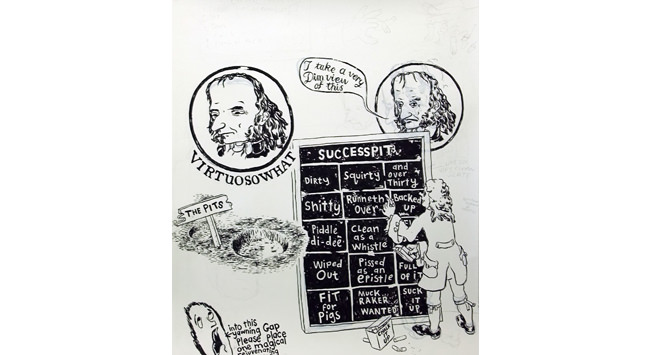 I take a very
Dim view
of this
VIRTUOSOWHAT
SUCCESSPIT
DIRTY
Squirty
and
over
Thirty
Shitty
Runneth
Over
Backed
UP
THE PITS
Piddle
di-dee
Clean
as a
Whistle
Wiped
Out
Pissed
as an
epistle
FULL
OF IT
FIT
for
Pigs
MUCK
RAKER
WANTED
SUCK
IT
UP
into this
yawning Gap
Please place
one magical
rejuvenating